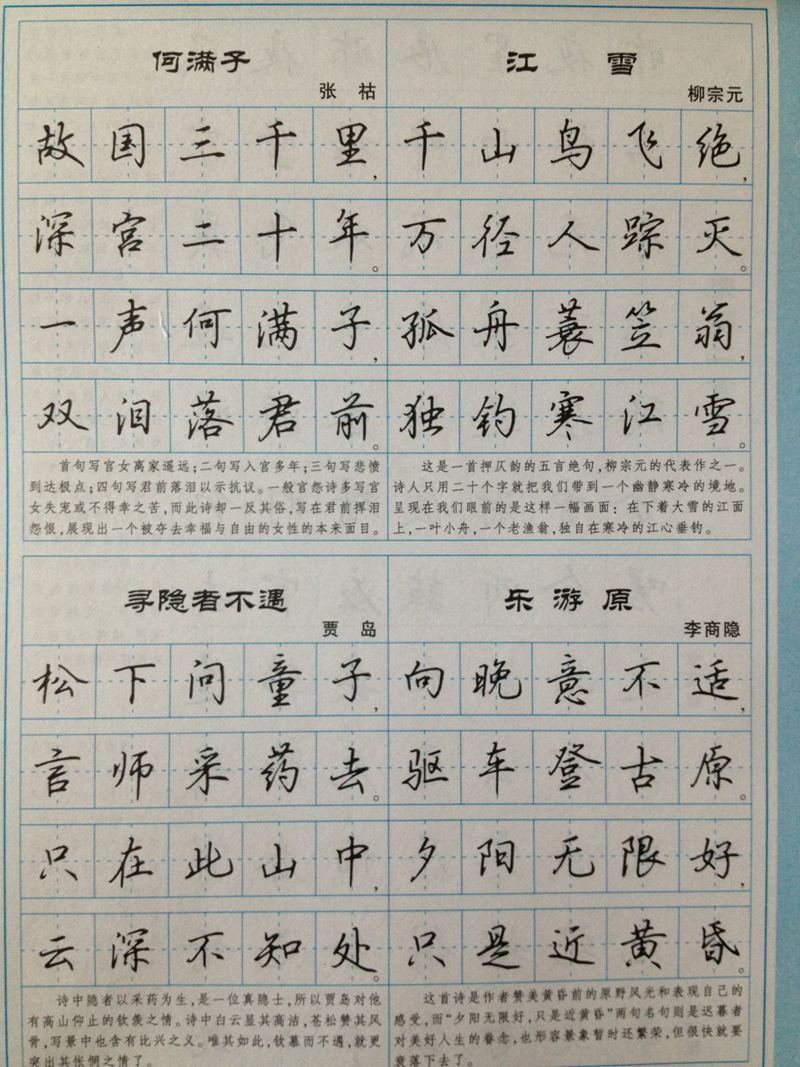 何满子
张 祜
故国三千里，
深宫二十年。
一声何满子，
双泪落君前。
首句写宫女离家遥远；二句写入宫多年；三句写悲愤
到达极点；四句写君前落泪以示抗议。一般宫怨诗多写宫
女失宠或不得幸之苦，而此诗却一反其俗，写在君前挥泪
怨恨，展现出一个被夺去幸福与自由的女性的本来面目。
江 雪
柳宗元
千山鸟飞绝，
万径人踪灭。
孤舟蓑笠翁，
独钓寒江雪。
这是一首押仄韵的五言绝句，柳宗元的代表作之一。
诗人只用二十个字就把我们带到一个幽静寒冷的境地。
呈现在我们眼前的是这样一幅画面：在下着大雪的江面
上，一叶小舟，一个老渔翁，独自在寒冷的江心垂钓。
寻隐者不遇
贾 岛
松下问童子，
言师采药去。
只在此山中，
云深不知处。
诗中隐者以采药为生，是一位真隐士，所以贾岛对他
有高山仰止的钦羡之情。诗中白云显其高洁，苍松赞其风
骨，写景中也含有比兴之义。唯其如此，钦慕而不遇，就更
突出其怅惘之情了。
乐游原
李商隐
向晚意不适，
驱车登古原。
夕阳无限好，
只是近黄昏。
这首诗是作者赞美黄昏前的原野风光和表现自己的
感受，而“夕阳无限好，只是近黄昏”两句名句则是迟暮者
对美好人生的眷念，也形容景象暂时还繁荣，但很快就要
衰落下去了。